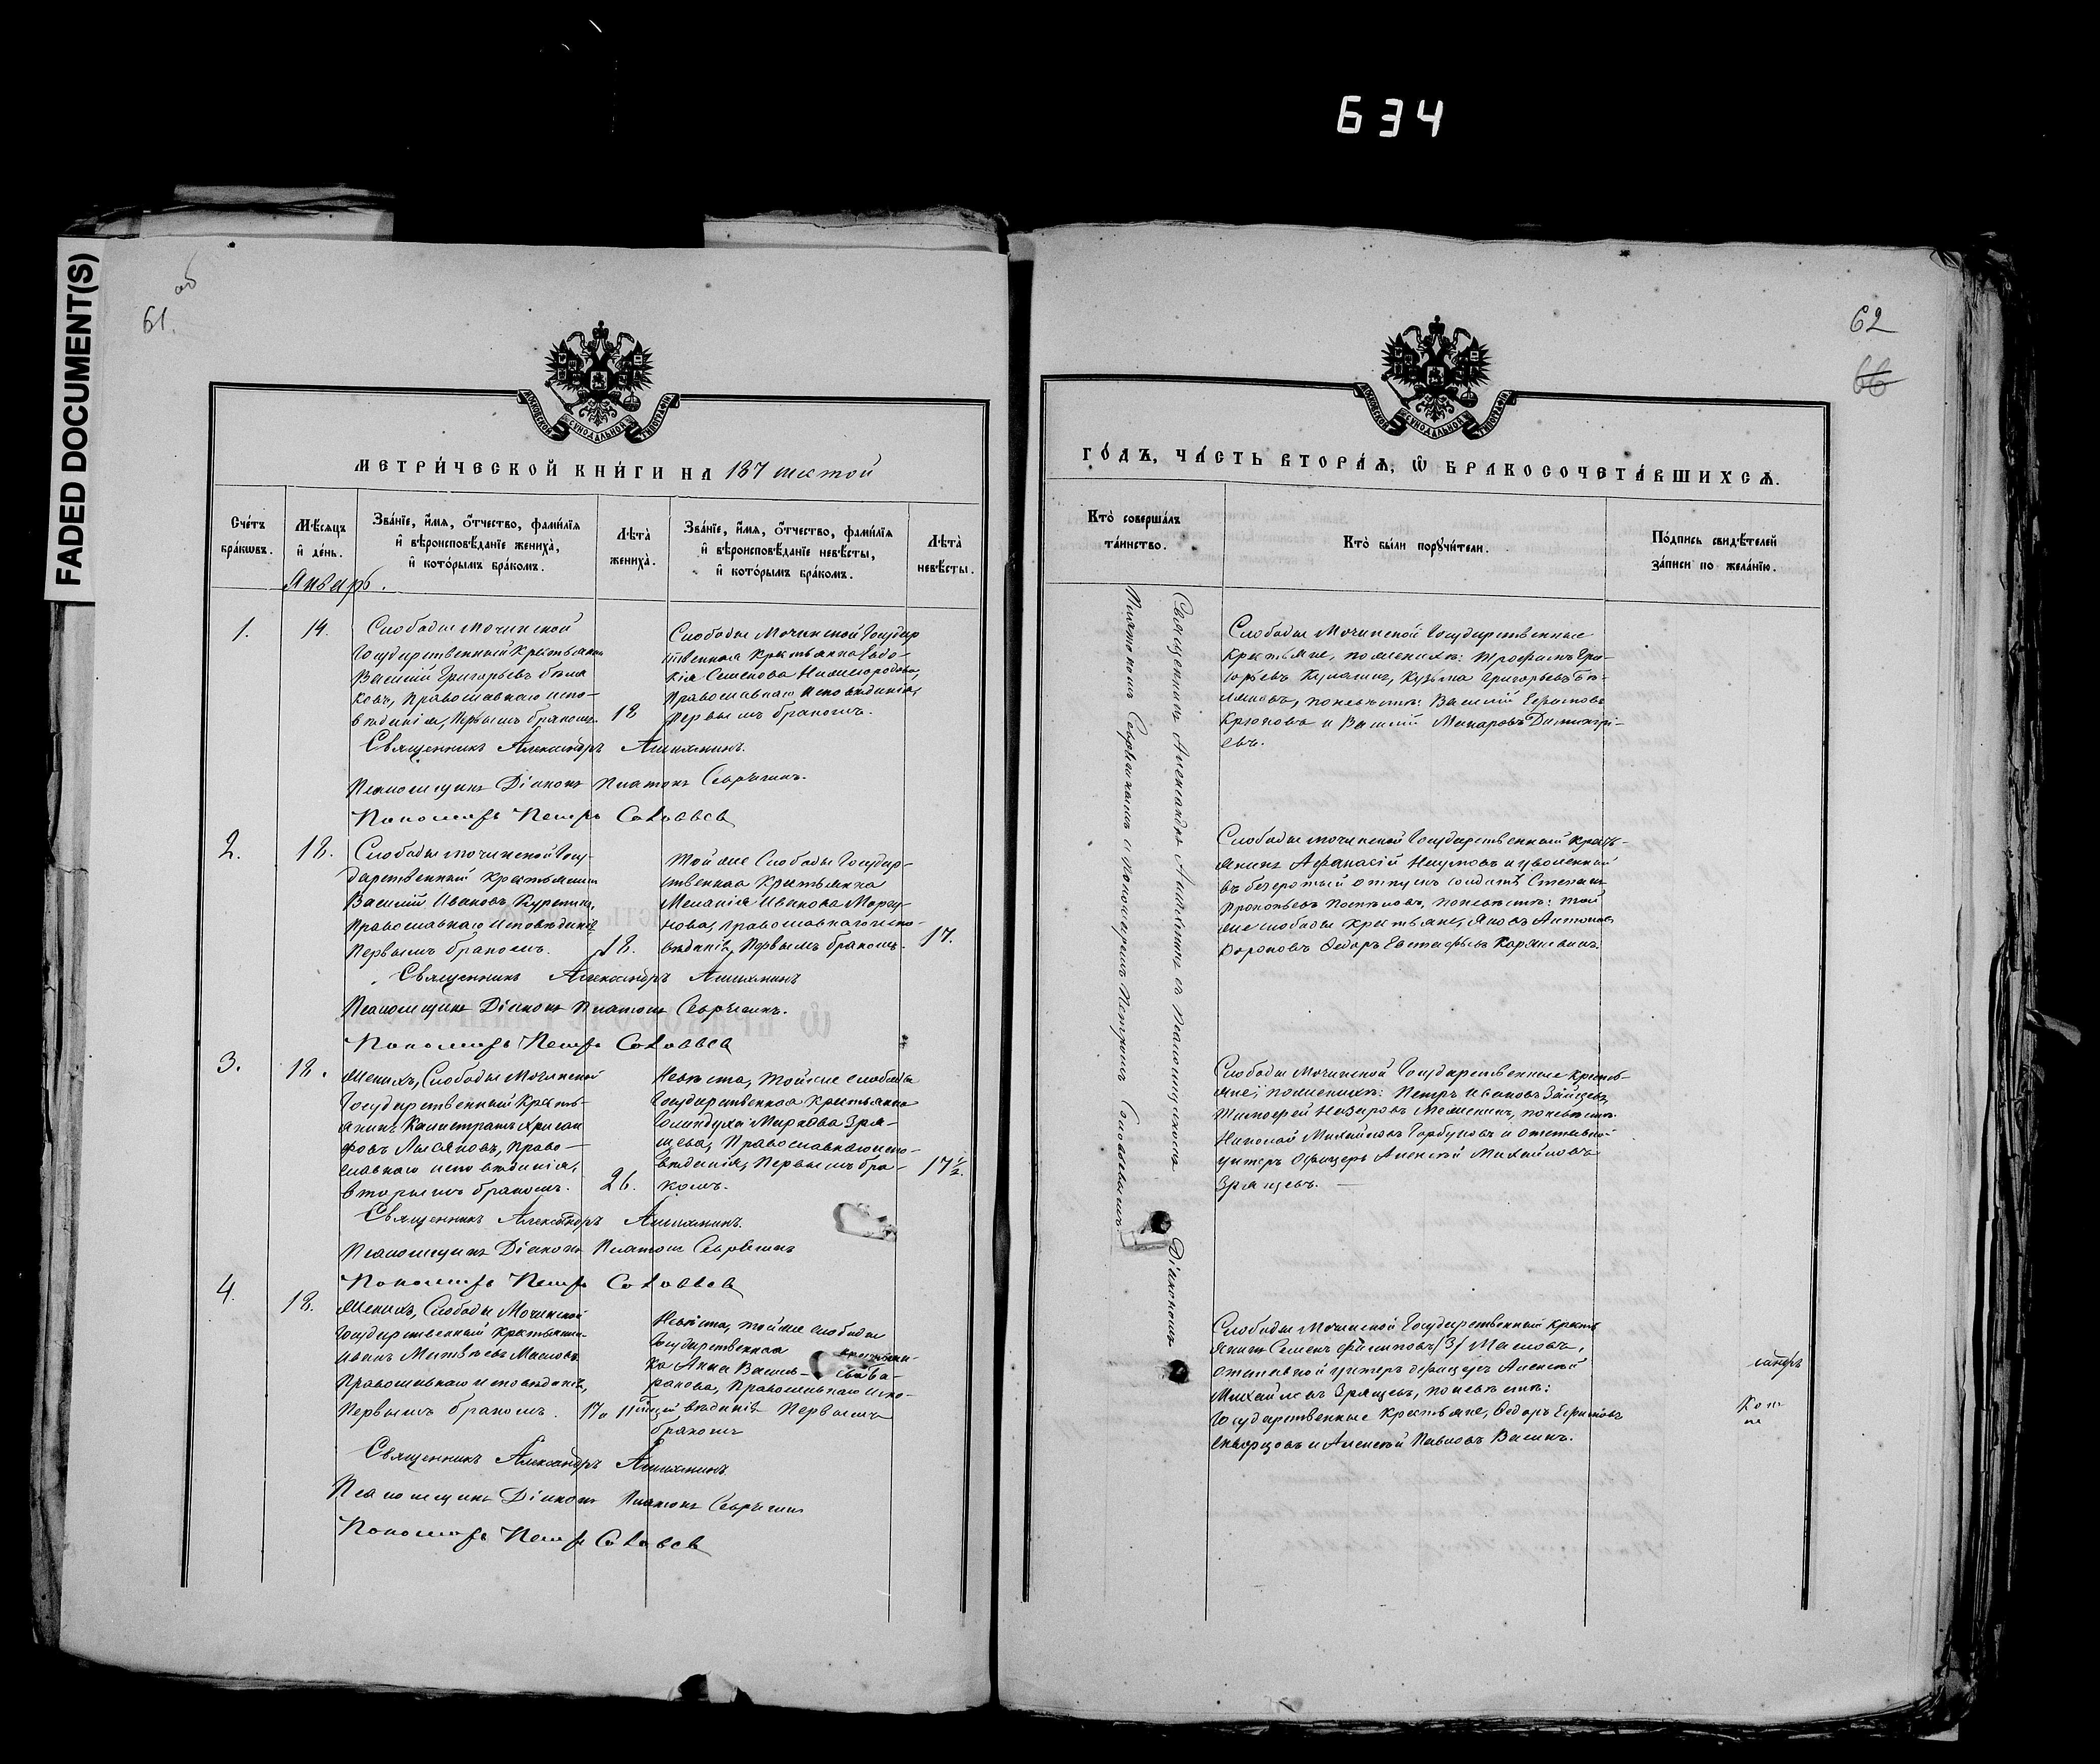 634
FADED DOCUMENT(S)
61.
об
МОСКОВСКОЙ СУНОДАЛЬНОЙ ТИПОГРАФІИ
МЕТРИ́ЧЕСКОЙ КНИ́ГИ НА 187 шестой
Сче́тъ бра́кѡвъ.
Мѣ́сяцъ и҆ де́нь.
Зва́нїе, и҆́мѧ, ѻ҆́тчество, фами́лїѧ и҆ вѣроисповѣ́данїе жениха̀, и҆ кото́рымъ бра́комъ.
Лѣта̀ жениха̀.
Зва́нїе, и҆́мѧ, ѻ҆́тчество, фами́лїѧ и҆ вѣроисповѣ́данїе невѣ́сты, и҆ кото́рымъ бра́комъ.
Лѣта̀ невѣ́сты.
Январь.
1.
14.
Слободы Мочинской
Государственный Крестьянинъ
Василий Григорьевъ Бѣля
ковъ, Православнаго испо-
вѣданія, Первымъ бракомъ.
18
Слободы Мочинской Государ
ственная Крестьянка Евдо-
кія Семенова Нижегородова,
Православнаго Исповѣданія,
Первымъ бракомъ.
Священникъ Александръ
Псаломщикъ Діаконъ Платонъ
Пономарь Петръ Соловьев
2.
18.
Слободы Мочинской Госу-
дарственный Крестьянинъ
Василий Ивановъ
Православнаго Исповѣданія
Первымъ бракомъ.
18.
Той же Слободы Государ-
ственная Крестьянка
Меланія Иванова Моргу-
нова, Православнаго испо-
вѣданія, Первымъ бракомъ.
17.
Священникъ Александръ
Псаломщикъ Діаконъ Платонъ
Пономарь Петръ Соловьев
3.
18.
Женихъ, Слободы Мочинской
Государственный Кресть-
янинъ Калистратъ Хрисан
фовъ Право-
славнаго исповѣданія,
вторымъ бракомъ.
26.
Невѣста, Той же слободы
Государственная Крестьянка
Голиндуха Маркова Зря-
щева, Православнаго испо-
вѣданія, Первымъ бра-
комъ.
17½.
Священникъ Александръ
Псаломщикъ Діаконъ Платонъ
Пономарь Петръ Соловьев
4.
18.
Женихъ, Слободы Мочинской
Государственный Крестьянинъ
Иванъ Матвѣевъ Масловъ
Православнаго исповѣданія,
Первымъ бракомъ.
Невѣста, той же слободы
Государственная крестьян-
ка Анна Василь-
Православнаго испо-
вѣданія Первымъ
бракомъ
Священникъ Александръ
Псаломщикъ Діаконъ Платонъ
Пономарь Петръ Соловьев
62
66
МОСКОВСКОЙ СУНОДАЛЬНОЙ ТИПОГРАФІИ
ГО́ДЪ, ЧА́СТЬ ВТОРА́Ѧ, Ѽ БРАКОСОЧЕТА́ВШИХСѦ.
Кто̀ соверша́лъ та́инство.
Кто̀ бы́ли порꙋчи́тели.
По́дпись свидѣ́телей за́писи по жела́нїю.
Священникъ Александръ съ Псаломщикомъ Діакономъ
Платономъ и пономаремъ Петромъ Соловьевымъ.
Слободы Мочинской Государственные
Крестьяне, по женихѣ: Трофимъ Гри-
горьевъ Кузьма Григорьевъ Бѣ-
ляковъ, по невѣстѣ: Василий Ефимовъ
Крюковъ и Василий Макаровъ Димитрі-
евъ.
Слободы Мочинской Государственный Кресть-
янинъ Афанасій Наумовъ и уволенный
въ безсрочный отпускъ солдатъ Степанъ
Прокопьевъ по невѣстѣ: той
же слободы крестьяне, Яковъ Антоновъ
Воронковъ Федоръ Евстафьевъ
Слободы Мочинской Государственные Кресть-
яне, по женихѣ: Петръ Ивановъ Зайцевъ,
Тимофей Назаровъ по невѣстѣ:
Николай Михайловъ Горбуновъ и отставной
унтеръ Офицеръ Алексѣй Михайловъ
Зрящевъ.
Слободы Мочинской Государственный Кресть
янинъ Семенъ Филиповъ /3/ Масловъ,
Отставной унтеръ офицеръ Алексѣй
Михайловъ Зрящевъ, по невѣстѣ:
Государственные Крестьяне, Федоръ Ефимовъ
Скворцовъ и Алексѣй Павловъ Васинъ.